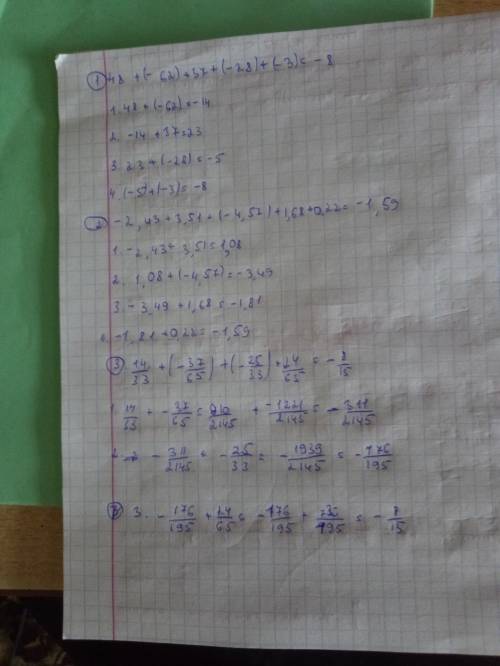 ① 48 + (- 62) + 37 + (-28) + (-3) = -8
1. 48 + (-62) = -14
2. -14 + 37 = 23
3. 23 + (-28) = -5
4. (-5) + (-3) = -8
② -2,43 + 3,51 + (-4,57) + 1,68 + 0,22 = -1,59
1. -2,43 + 3,51 = 1,08
2. 1,08 + (-4,57) = -3,49
3. -3,49 + 1,68 = -1,81
-1,81 + 0,22 = -1,59
③ 14/33 + (-37/65) + (-25/33) + 24/65 = -8/15
+ -37/65 = 910/2145 + -1221/2145 = -311/2145
2. -311/2145 = -25/33 = -1939/2145 = -176/195
3. -176/195 + 24/65 = -176/195 + /195 = -8/15